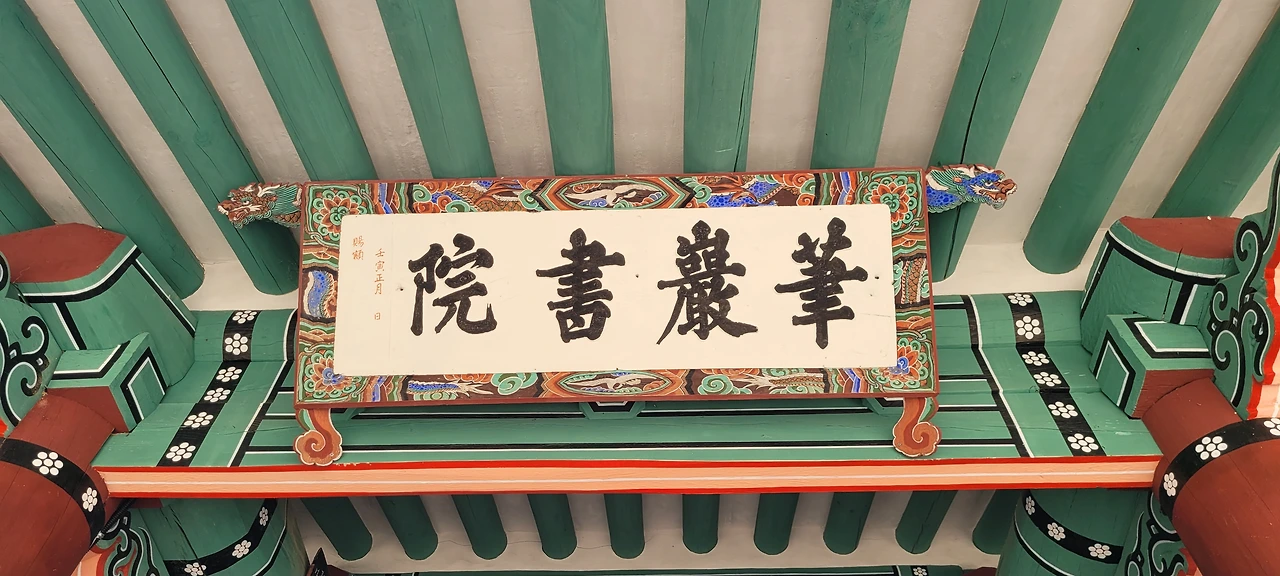 筆巖書院
壬寅正月 日
賜額